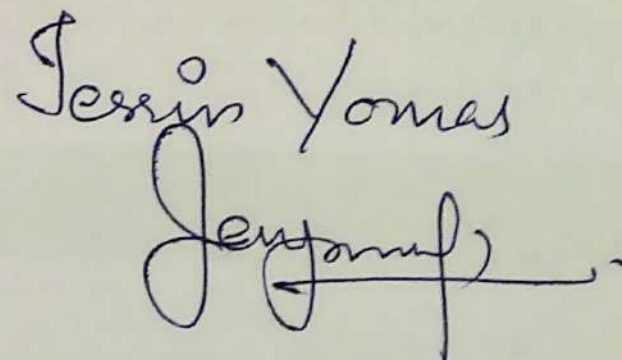 Jessin Yomas